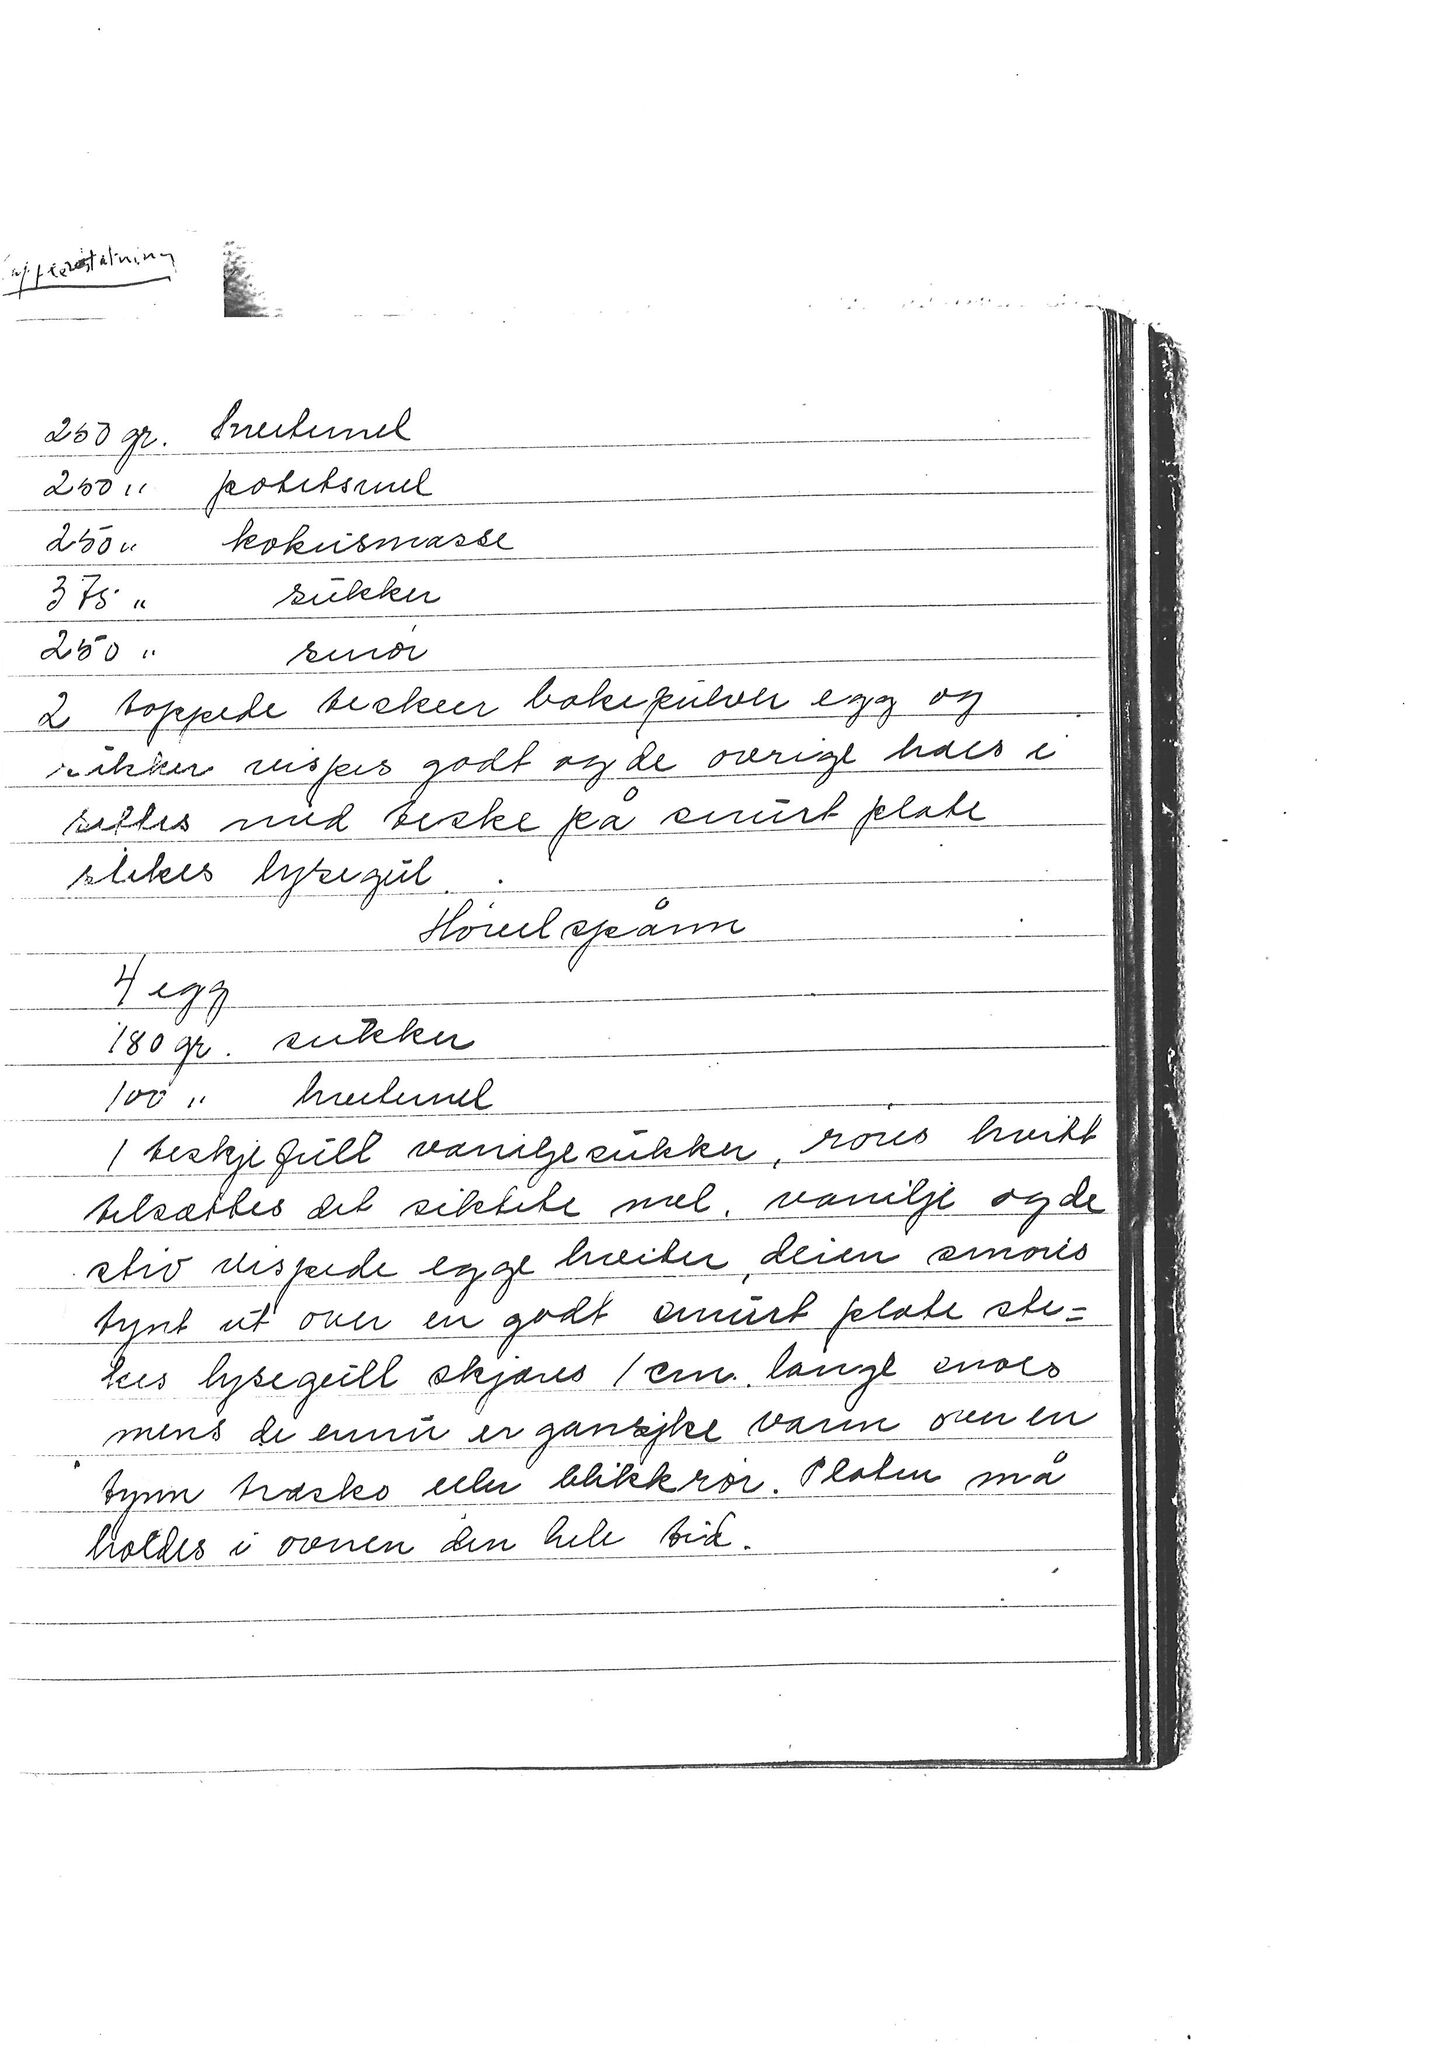 250 gr. hvetemel
250 " potetsmel
250 " kokusmasse
375 " sukker
250 " smør
2 toppede teskeer bakepulver egg og
sukker vispes godt og de øvrige haes i
settes med teske på smurt plate
stekes lysegul.
Høvelspånn
4 egg
180 gr. sukker
100 " hvetemel
1 teskjefull vaniljesukker, røres hvitt
telsættes det siktete mel. vanilje og de
stiv vispede egge hveiter, deien smøres
tynt ut over en godt smurt plate ste=
kes lysegull skjæres 1 cm. lange snoes
mens de ennu er gansjke varm over en
tynn træsko eller blikkrør. Platen må
holdes i ovnen den hele tid.